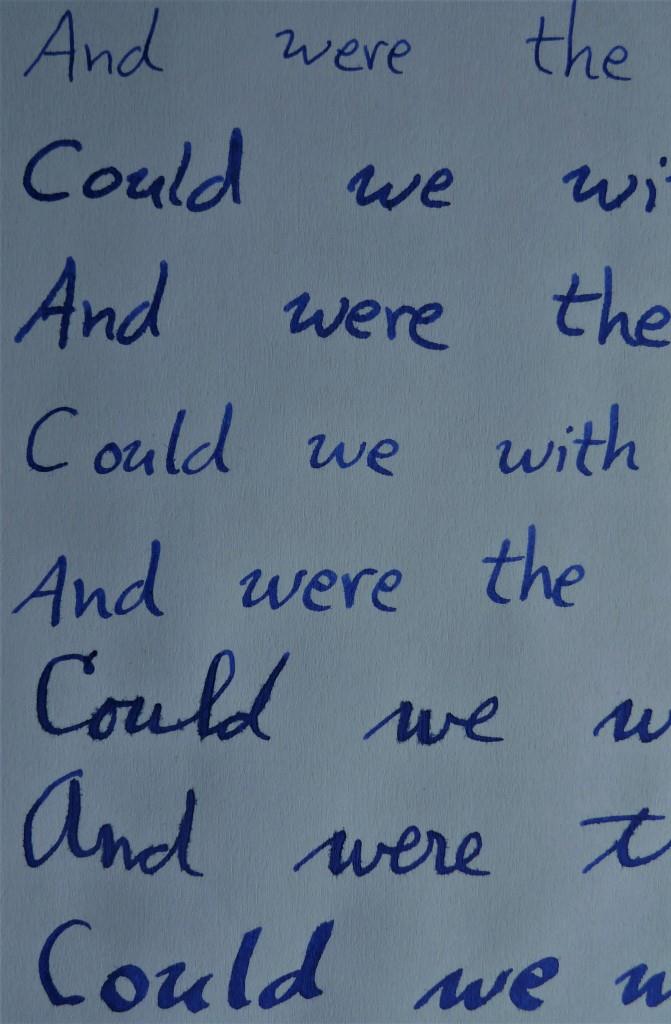 And were the
Could we wi
And were the
Could we with
And were the
Could we w
And were t
Could we w